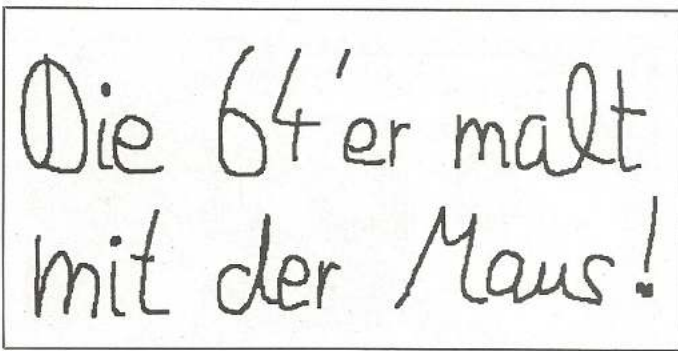 Die 64'er malt
mit der Maus!